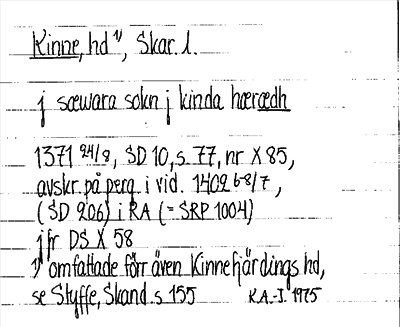 Kinne, hd 1), Skar. l.
j sæwara sokn j kinda hærædh
1371 24/8, SD 10, s. 77, nr X 85,
avskr. på perg. i vid. 1402 6-8/7,
(SD 206) i RA (= SRP 1004)
jfr DS X 58
1) omfattade förr även Kinnefjärdings hd,
se Styffe, Skand. s 155 K.A.-J. 1975